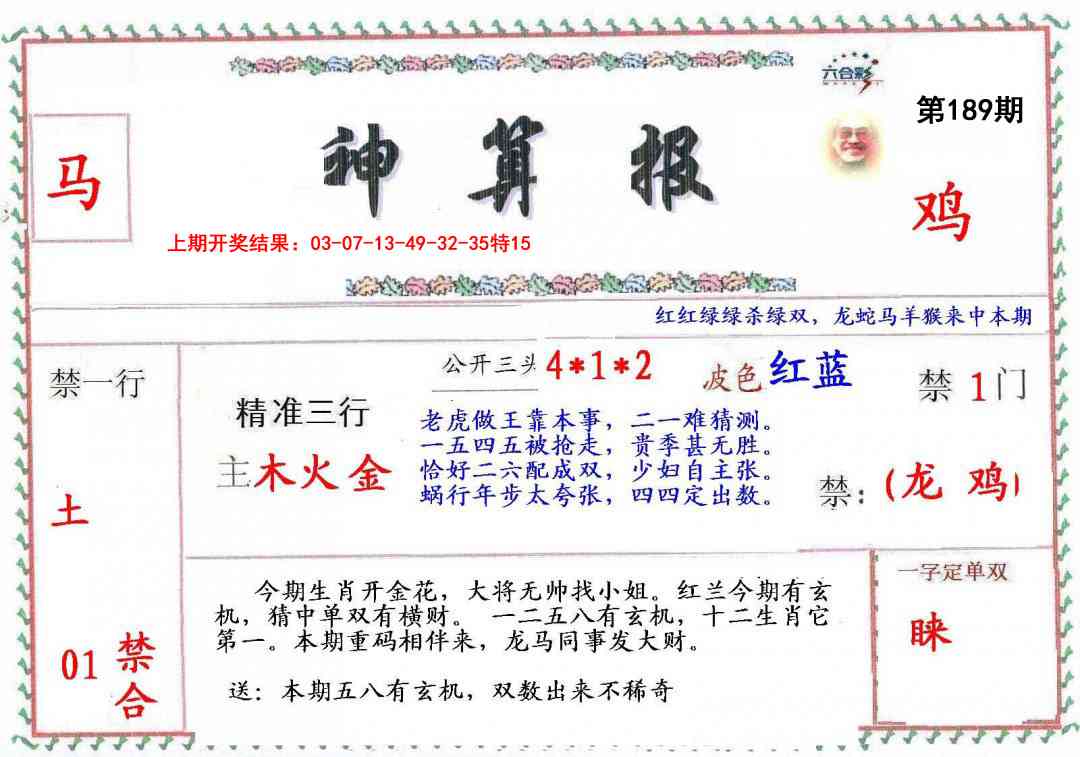 六合彩
第189期
神算报
马
鸡
上期开奖结果：03-07-13-49-32-35特15
红红绿绿杀绿双，龙蛇马羊猴来中本期
禁一行
土
01 禁合
公开三头 4*1*2
波色 红蓝
禁 1 门
精准三行
主木火金
老虎做王靠本事，二一难猜测。
一五四五被抢走，贵季甚无胜。
恰好二六配成双，少妇自主张。
蜗行年步太夸张，四四定出数。
禁：(龙 鸡)
今期生肖开金花，大将无帅找小姐。红兰今期有玄
机，猜中单双有横财。 一二五八有玄机，十二生肖它
第一。本期重码相伴来，龙马同事发大财。
送：本期五八有玄机，双数出来不稀奇
一字定单双
睐